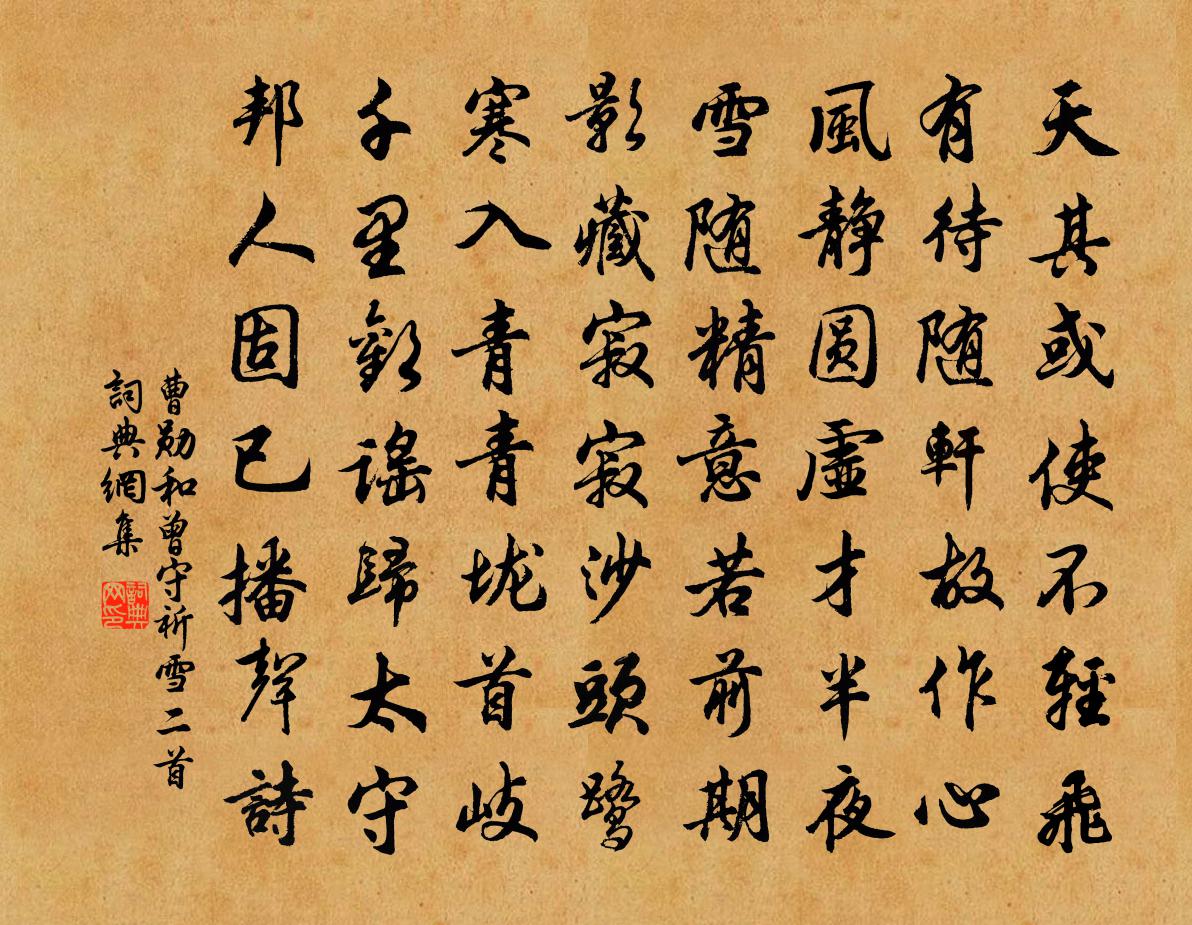 天其或使不轻飛
有待随軒故作心
風静圆虚才半夜
雪随精意若前期
影藏寂寂沙頭鹭
寒入青青垅首岐
千里歡谣歸太守
邦人固已播聲詩
曹勋和曾守祈雪二首
詞典網集
詞典网印